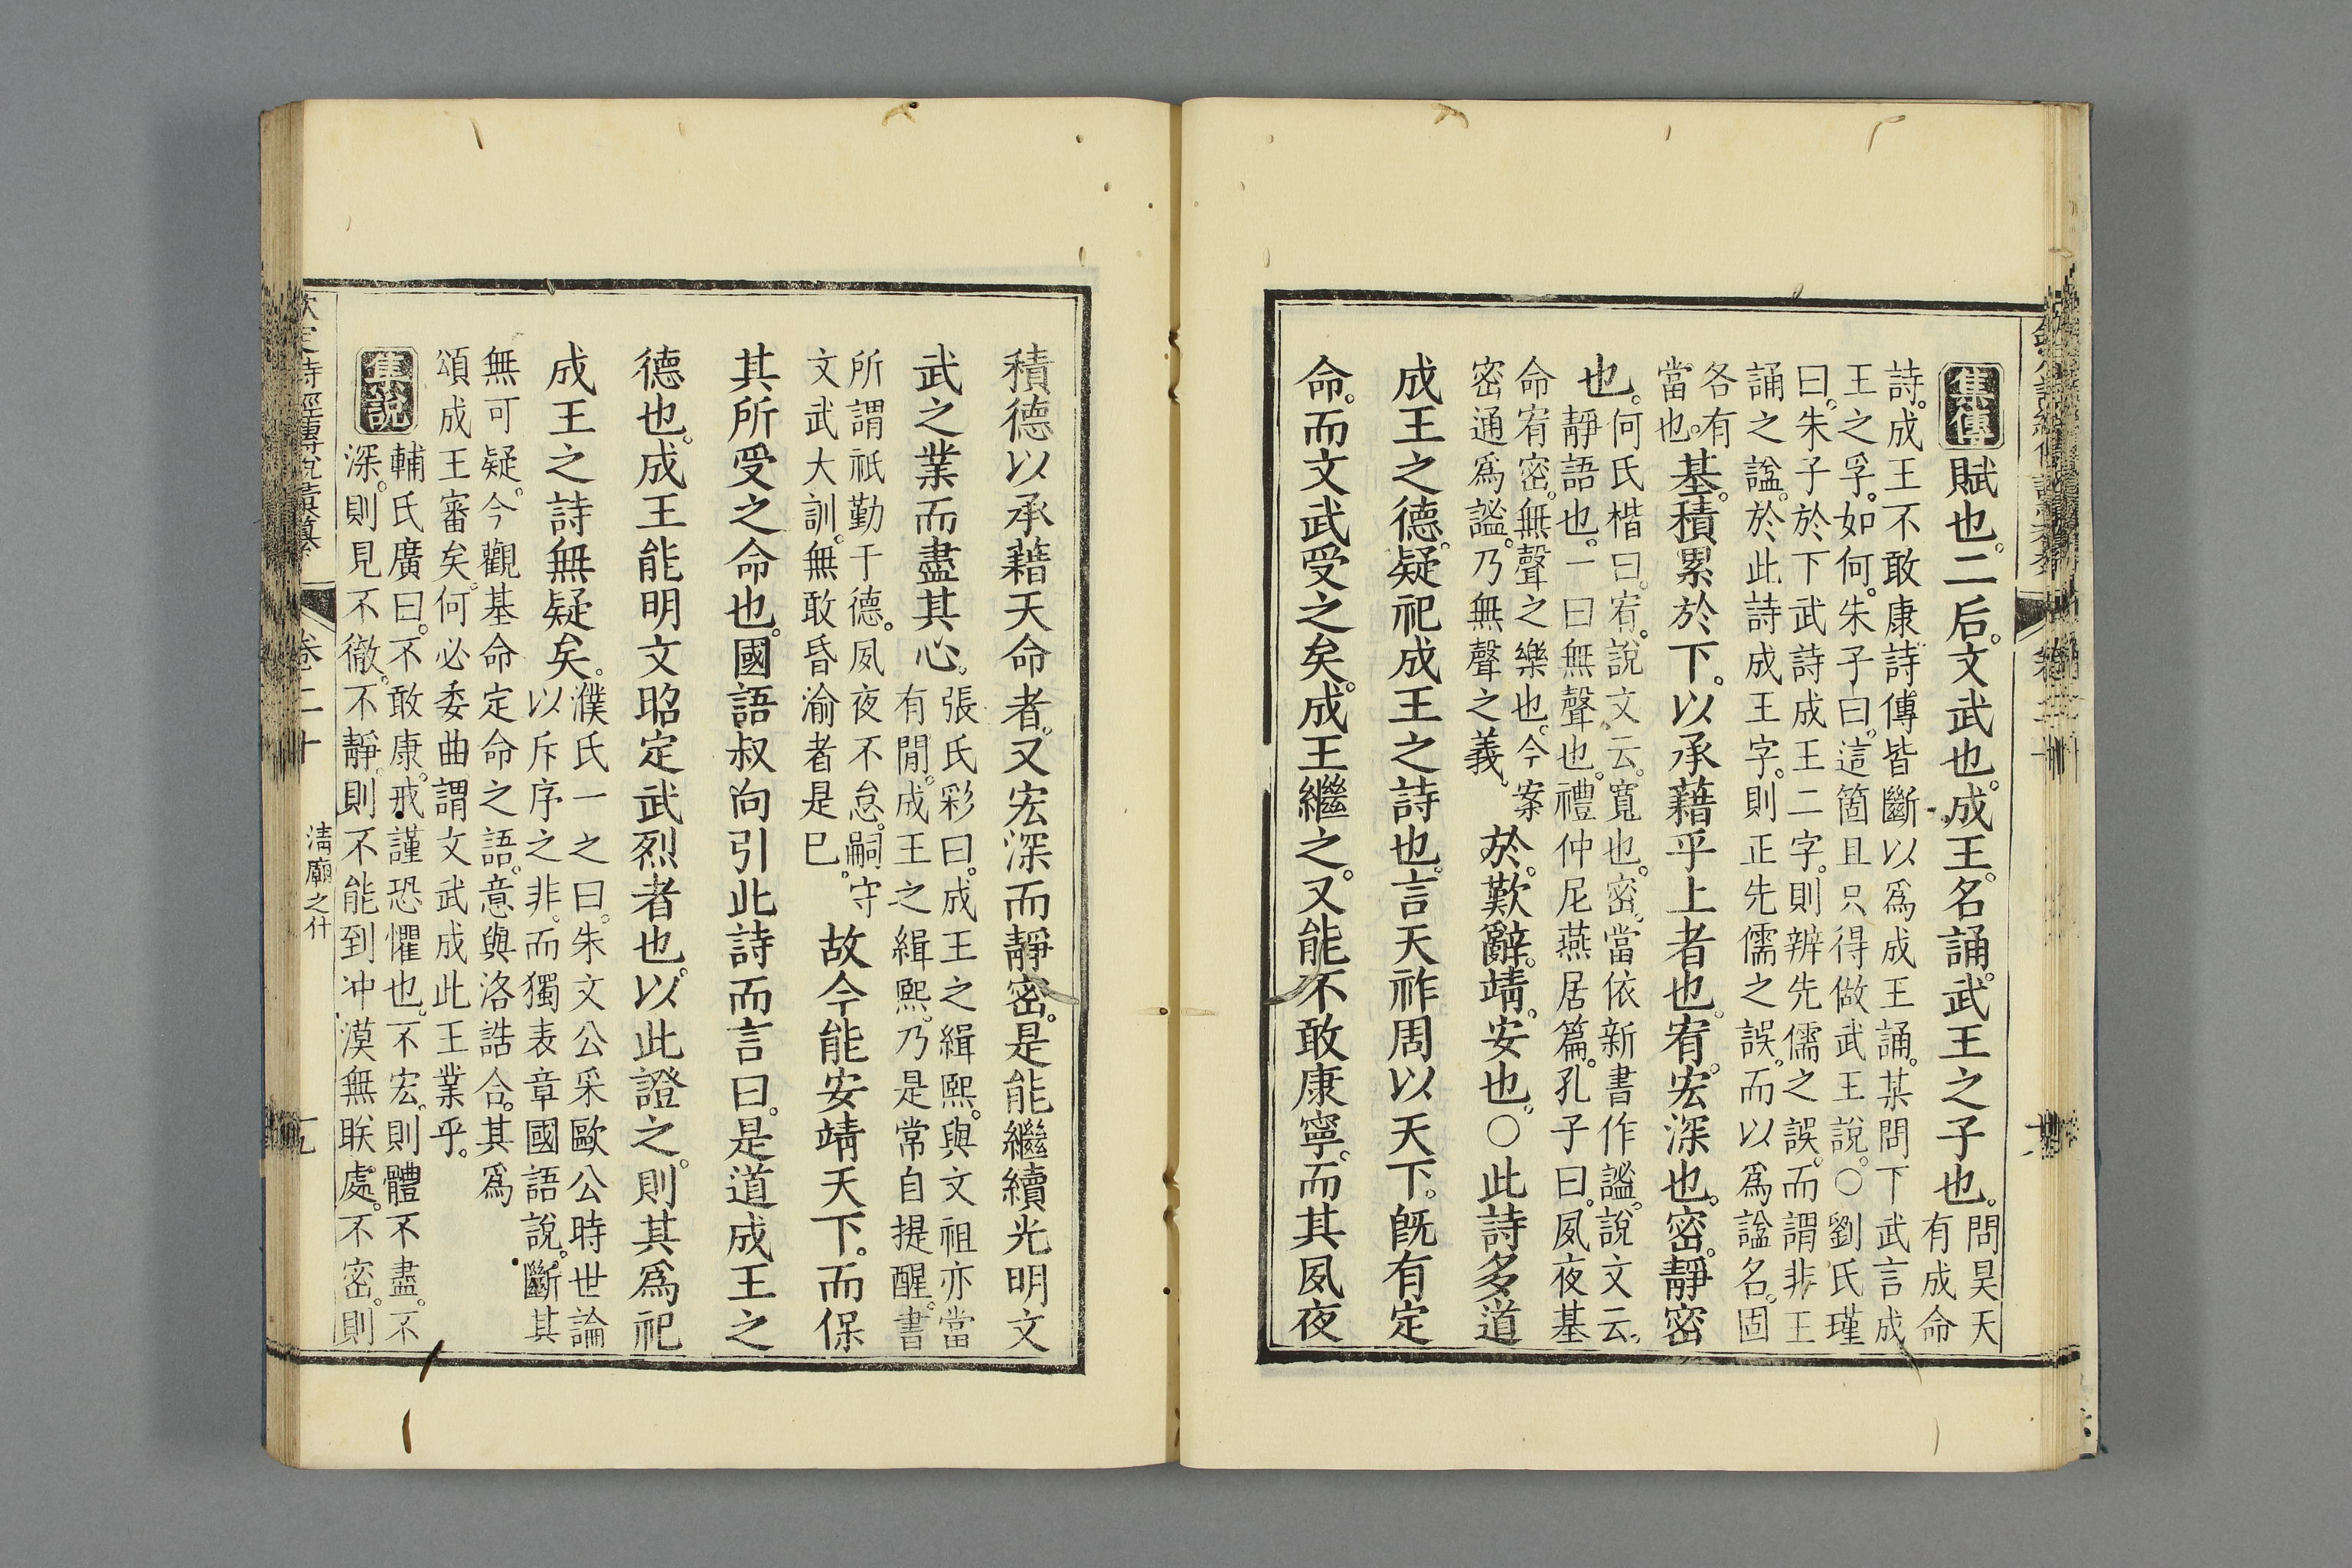 集傳
賦也。二后。文武也。成王。名誦。武王之子也。
問昊天
有成命
詩。成王不敢康。詩傳皆斷以為成王誦。某問下武言成
王之孚。如何。朱子曰。這箇且只得做武王說。○劉氏瑾
曰。朱子於下武詩成王二字。則辨先儒之誤。而謂非王
誦之諡。於此詩成王字。則正先儒之誤。而以為諡名。固
各有
當也。
基。積累於下。以承藉乎上者也。宥。宏深也。密。靜密
也。
何氏楷曰。宥。說文云。寬也。密。當依新書作謐。說文云。
靜語也。一曰無聲也。禮仲尼燕居篇。孔子曰。夙夜基
命宥密。無聲之樂也。今案
密通為謐。乃無聲之義。
於。歎辭。靖。安也。○此詩多道
成王之德。疑祀成王之詩也。言天祚周以天下。既有定
命。而文武受之矣。成王繼之。又能不敢康寧。而其夙夜
積德以承藉天命者。又宏深而靜密。是能繼續光明文
武之業而盡其心。
張氏彩曰。成王之緝熙。與文祖亦當
有閒。成王之緝熙。乃是常自提醒。書
所謂祇勤于德。夙夜不怠。嗣守
文武大訓。無敢昏渝者是已。
故今能安靖天下。而保
其所受之命也。國語叔向引此詩而言曰。是道成王之
德也。成王能明文昭定武烈者也。以此證之。則其為祀
成王之詩無疑矣。
濮氏一之曰。朱文公采歐公時世論
以斥序之非。而獨表章國語說。斷其
無可疑。今觀基命定命之語。意與洛誥合。其為
頌成王審矣。何必委曲謂文武成此王業乎。
集說
輔氏廣曰。不敢康。戒謹恐懼也。不宏。則體不盡。不
深。則見不徹。不靜。則不能到沖漠無朕處。不密。則
卷二十
清廟之什